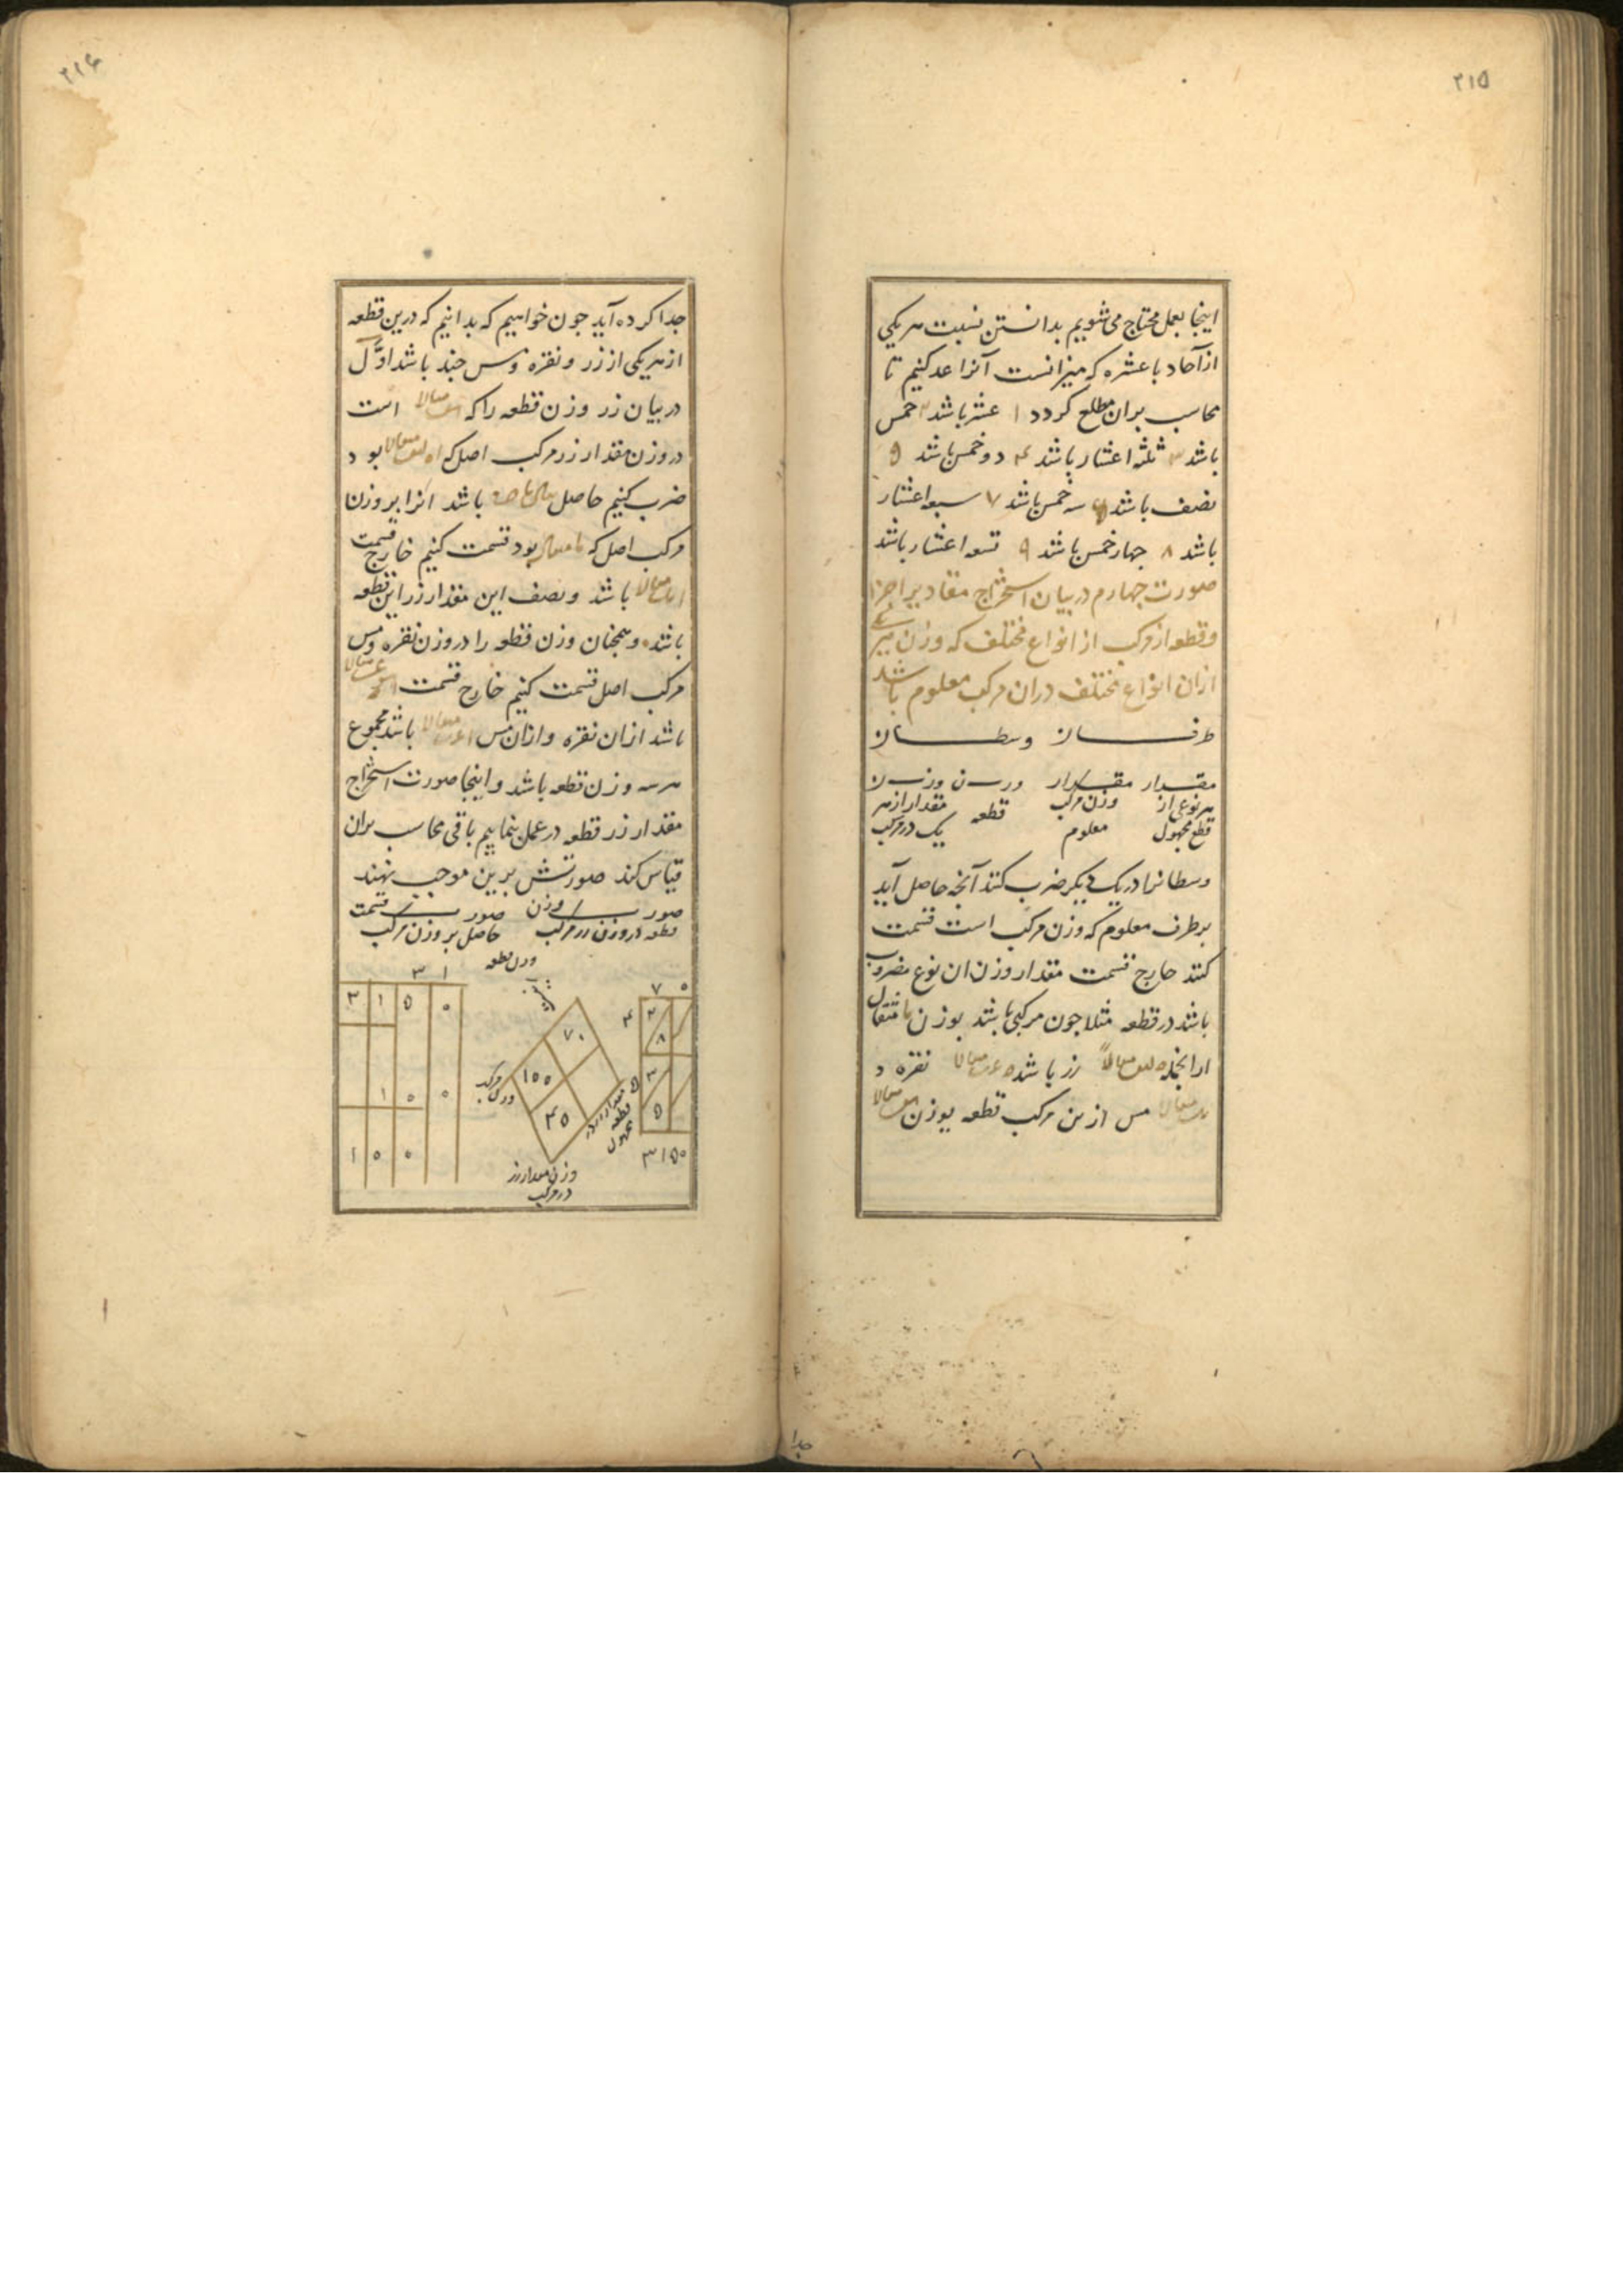 ۲۱۵
اینجا بعمل محتاج می شویم بدانستن نسبت هر یکی
از آحاد با عشره که میزانست آنرا عد کنیم تا
محاسب بران مطلع کردد ۱ عشر باشد ۲ خمس
باشد ۳ ثلثه اعشار باشد ۴ دو خمس باشد ۵
نصف باشد ۶ سه خمس باشد ۷ سبعه اعشار
باشد ۸ جهار خمس باشد ۹ تسعه اعشار باشد
صورت جهارم در بیان استخراج مقادیر اجزا
و قطعه از مرکب از انواع مختلف که وزن هر
ازان انواع مختلف دران مرکب معلوم باشد
طرفان وسطان
مقدار مقدار وزن وزن
هر نوعی از وزن مرکب قطعه مقدار از هر
قطع مجهول معلوم یک در مرکب
وسطانرا در یک دیکر ضرب کنند آنچه حاصل آید
بر طرف معلوم که وزن مرکب است قسمت
کنند خارج قسمت مقدار وزن ان نوع مضروب
باشد در قطعه مثلا جون مرکبی باشد بوزن مثقال
ازانجمله زر باشد نقره و
مس ازین مرکب قطعه بوزن
جدا
۲۱۶
جدا کرده آید جون خواهیم که بدانیم که درین قطعه
از هر یکی از زر و نقره و مس جند باشد اول
در بیان زر وزن قطعه را که است
در وزن مقدار زر مرکب اصل که بود
ضرب کنیم حاصل باشد انرا بر وزن
مرکب اصل که بود قسمت کنیم خارج قسمت
باشد و نصف این مقدار زر این قطعه
باشد و همجنان وزن قطعه را در وزن نقره و مس
مرکب اصل قسمت کنیم خارج قسمت
باشد ازان نقره و ازان مس باشد مجموع
هر سه وزن قطعه باشد و اینجا صورت استخراج
مقدار زر قطعه در عمل بنماییم باقی محاسب بران
قیاس کند صورتش برین موجب نهند
صورت وزن صورت قسمت
قطعه در وزن زر مرکب حاصل بر وزن مرکب
وزن قطعه
۳ ۱
۷ ۰
۳ ۱ ۵ ۰
۴ ۲
۸
۷۰
۱۵۵
۴۵
وزن مرکب
مقدار زر در قطعه مجهول
۵ ۳
۵
۱ ۵ ۰
۱ ۵ ۰
۳۱۵۰
وزن مقدار زر
در مرکب